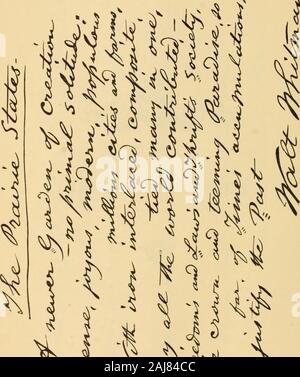 The Prairie States.
A newer Garden of Creation
— no primal solitude,
ense, joyous, modern, populous
millions, cities and farms,
ith iron interlaced, composite,
tied, many in one,
y all the world contributed —
edom's and Law's and Thrift's Society,
e crown and teeming Paradise, so
far, of Time's accumulations,
justify the Past
Walt
2AJ84CC